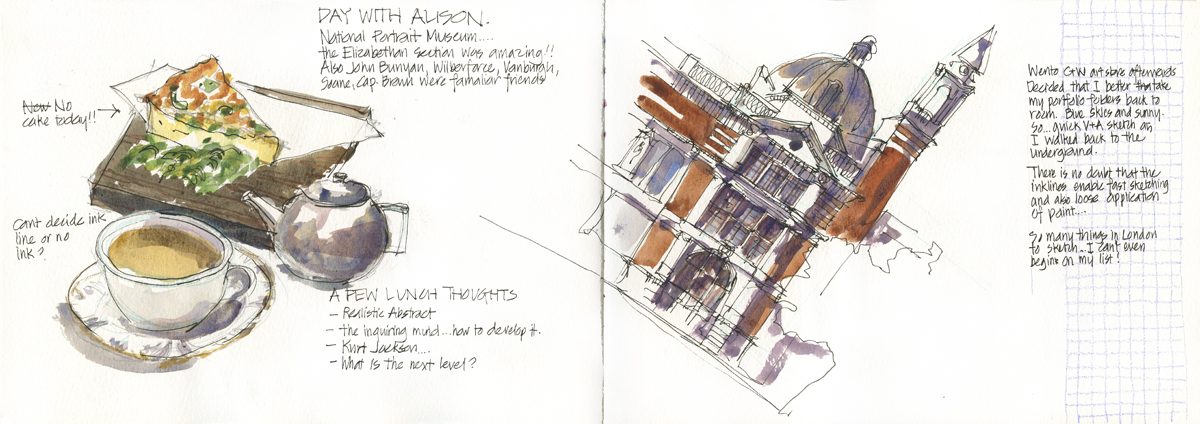 DAY WITH ALISON.
National Portrait Museum....
the Elizabethan section was amazing!!
Also John Bunyan, Wilberforce, Vanburgh,
Soane, Cap. Brown were familiar friends
New No
cake today!!
Can't decide ink
line or no
ink?
A FEW LUNCH THOUGHTS
- Realistic Abstract
- the inquiring mind...how to develop it.
- Kurt Jackson....
- What is the next level?
Went to C+W art store afterwards
Decided that I better take
my portfolio folders back to
room. Blue skies and sunny.
So... quick V+A sketch as
I walked back to the
underground.
There is no doubt that the
inklines enable fast sketching
and also loose application
of paint....
So many things in London
to sketch...I can't even
begin on my list!